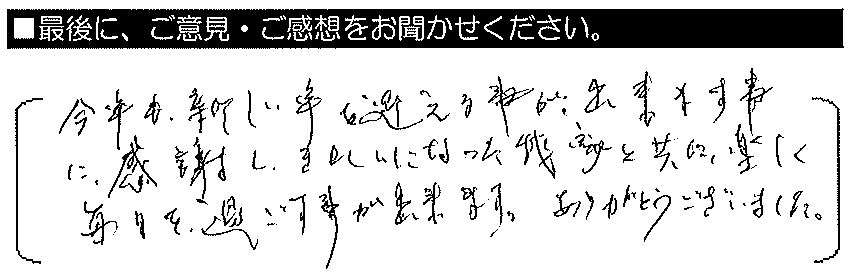 ■最後に、ご意見・ご感想をお聞かせください。
今年も、新しい年を迎える事が、出来ます事
に、感謝し、きれいになった我家と共に、楽しく
毎日を、過ごす事が出来ます。ありがとうございました。